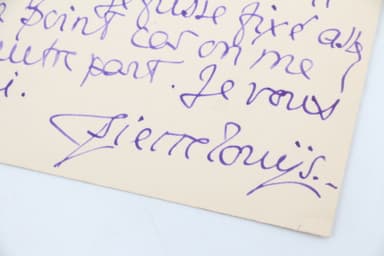 fusse fixé assez
point car on me
autre part. Je vous
i.
Pierre Louÿs.-